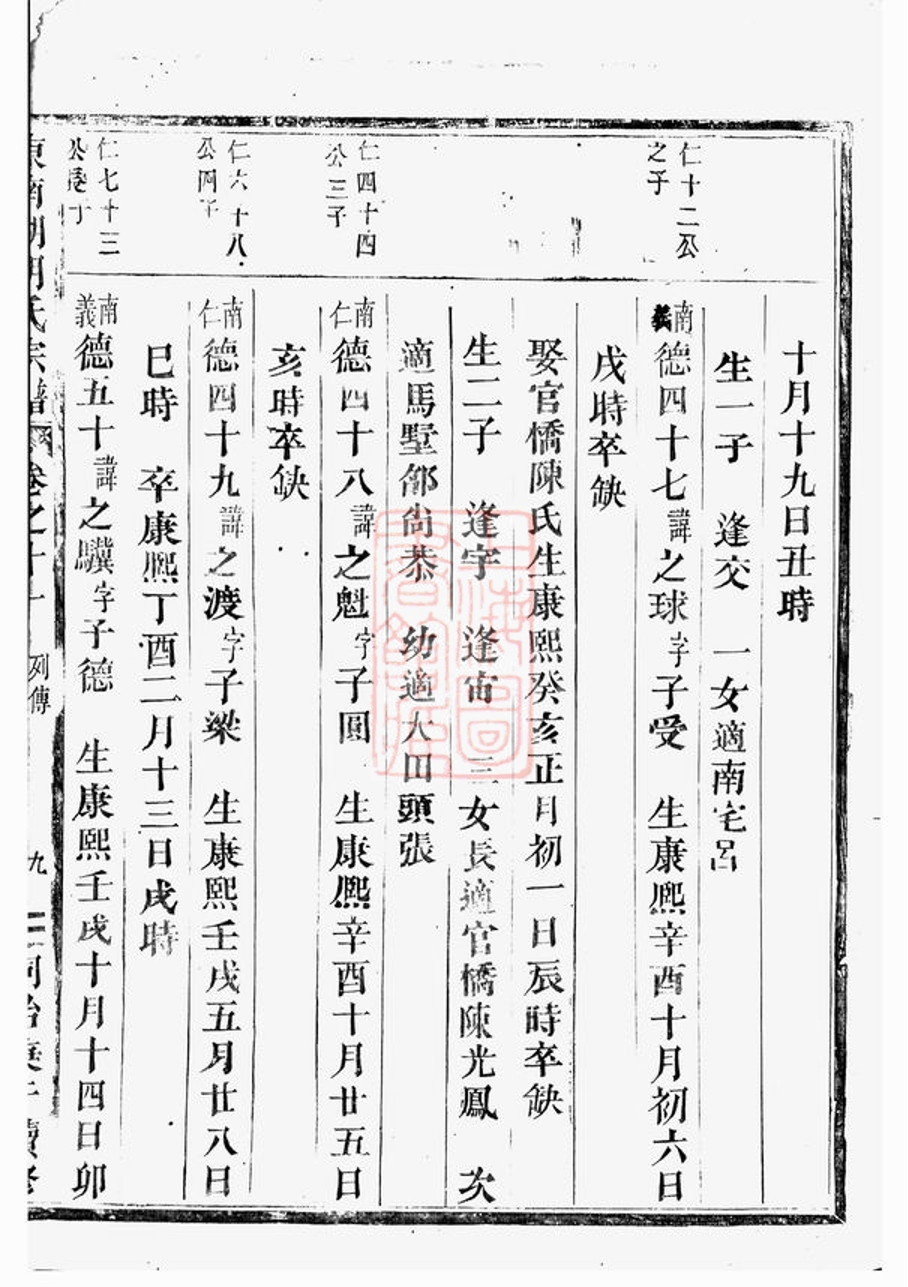 仁十二公
之子
仁四十四
公三子
仁六十八
公四子
仁七十三
公長子
十月十九日丑時
生一子　逢交　一女適南宅呂
南義德四十七諱之球字子受　生康熙辛酉十月初六日
戌時卒缺
娶官橋陳氏生康熙癸亥正月初一日辰時卒缺
生二子　逢字　逢宙　三女長適官橋陳光鳳　次
適馬墅邵尙恭　幼適大田頭張
南仁德四十八諱之魁字子圓　生康熙辛酉十月廿五日
亥時卒缺
南仁德四十九諱之渡字子梁　生康熙壬戌五月廿八日
巳時　卒康熙丁酉二月十三日戌時
南義德五十諱之驥字子德　生康熙壬戌十月十四日卯
胡氏宗譜　卷之十　列傳　九　同治庚午續修